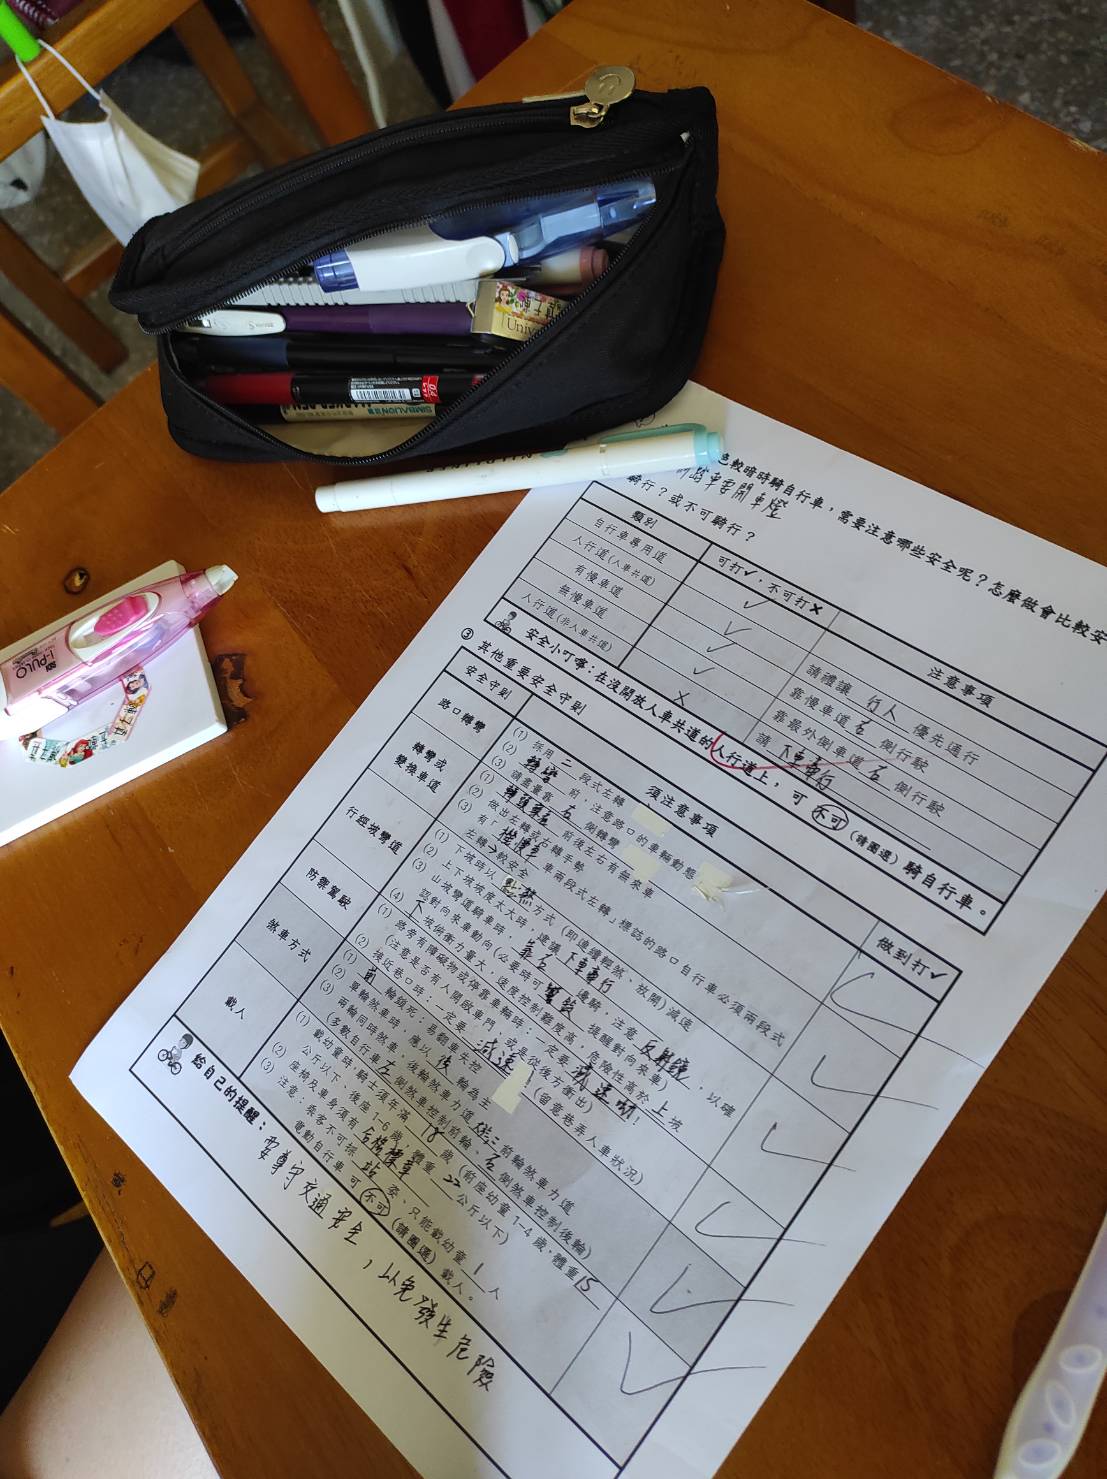 色較暗時騎自行車，需要注意哪些安全呢？怎麼做會比較安
車要開車燈
騎行？或不可騎行？
類別
可打✓，不可打✗
注意事項
自行車專用道
✓
人行道(人車共道)
✓
請禮讓 行人 優先通行
有慢車道
✓
靠慢車道 右 側行駛
無慢車道
靠最外側車道 右 側行駛
人行道(非人車共道)
✗
請 下車牽行
安全小叮嚀：在沒開放人車共道的人行道上，可 不可 (請圈選) 騎自行車。
③ 其他重要安全守則
安全守則
須注意事項
做到打✓
路口轉彎
(1) 採用 二 段式左轉
(2) 轉彎 前，注意路口的車輛動態
(3) 請盡量靠 右 側轉彎
轉彎或
變換車道
(1) 前後左右有無來車
(2) 做出左轉或右轉手勢
(3) 有「 機慢車 車兩段式左轉」標誌的路口自行車必須兩段式
左轉→較安全
行經坡彎道
(1) 下坡時以 點煞 方式 (即連續輕煞、放開) 減速
(2) 上下坡坡度太大時，建議 下車牽行
(3) 山坡彎道騎車時， 靠右 邊騎，注意 反射鏡 ，以確
認對向來車動向 (必要時可 提醒對向來車)
(4) 下 坡俯衝力量大，速度控制難度高，危險性高於 上 坡
防禦駕駛
(1) 路旁有障礙物或停靠車輛時：一定要 減速喲！
(注意是否有人開啟車門，或是從後方衝出)
(2) 接近巷口時：一定要 減速 (留意巷弄人車狀況)
煞車方式
(1) 前 輪鎖死：易翻車失控
(2) 單輪煞車時，應以 後 輪為主
(3) 兩輪同時煞車，後輪煞車力道 前輪煞車力道
(多數自行車 左 側煞車控制前輪、 右 側煞車控制後輪)
載人
(1) 載幼童時：騎士須年滿 18 歲 (前座幼童1-4歲，體重 15
公斤以下，後座：1-6歲，體重 22 公斤以下)
(2) 座椅及車身須有 合格標章
(3) 注意：乘客不可採 站 姿、只能載幼童 1 人
電動自行車 可 不可 (請圈選) 載人。
給自己的提醒：
要尊守交通安全，以免發生危險
i-PULO
SIMBALION